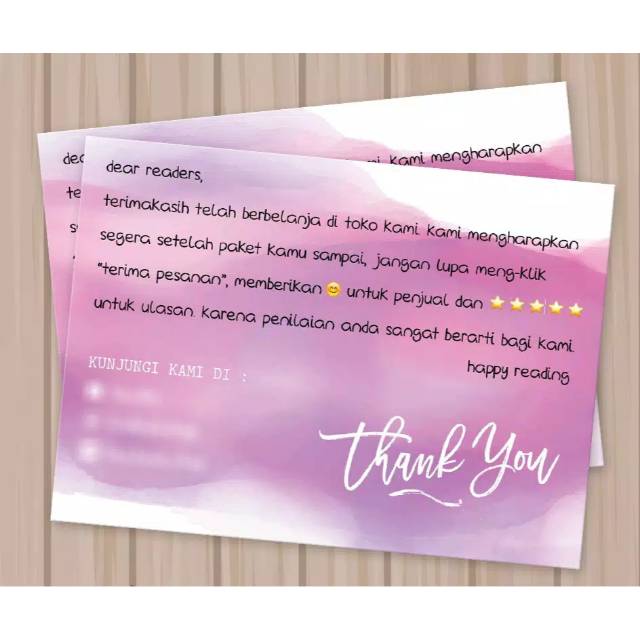 dear readers,
terimakasih telah berbelanja di toko kami. kami mengharapkan
segera setelah paket kamu sampai, jangan lupa meng-klik
"terima pesanan", memberikan 😊 untuk penjual dan ⭐⭐⭐⭐⭐
untuk ulasan. karena penilaian anda sangat berarti bagi kami.
happy reading
KUNJUNGI KAMI DI :
Thank You
kami mengharapkan